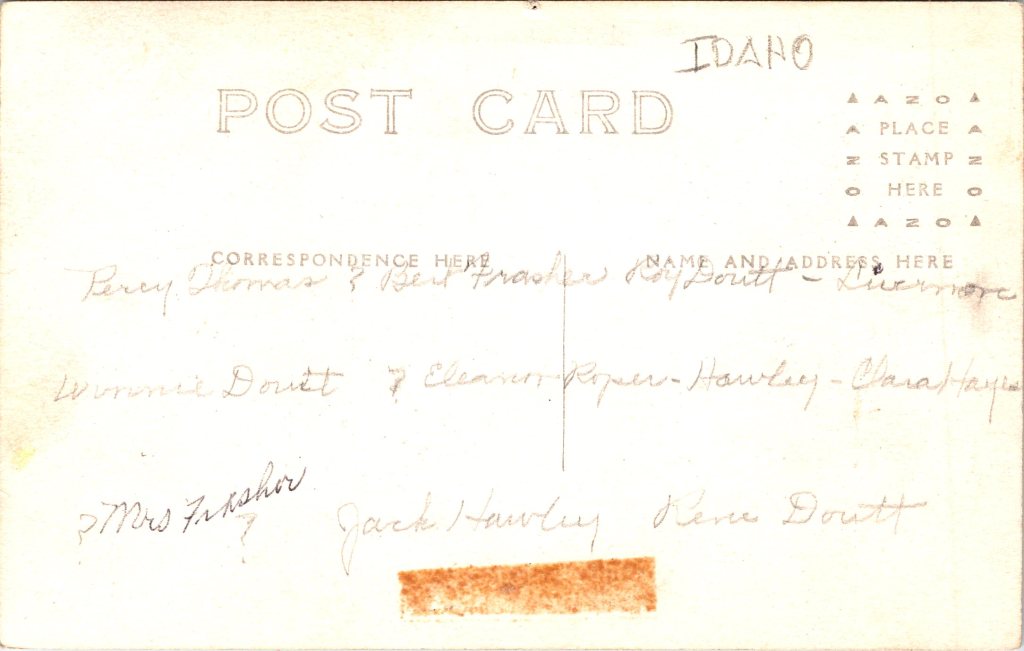 IDAHO
POST CARD
▲ AZO ▲
A PLACE A
Z STAMP Z
O HERE O
▲ AZO ▲
CORRESPONDENCE HERE
NAME AND ADDRESS HERE
Percy Thomas ? Bert Frasher Roy Doutt - Livermore
Winnie Doutt ? Eleanor Roper - Hawley - Clara Hayes
? Mrs Frasher ? Jack Hawley Rene Doutt